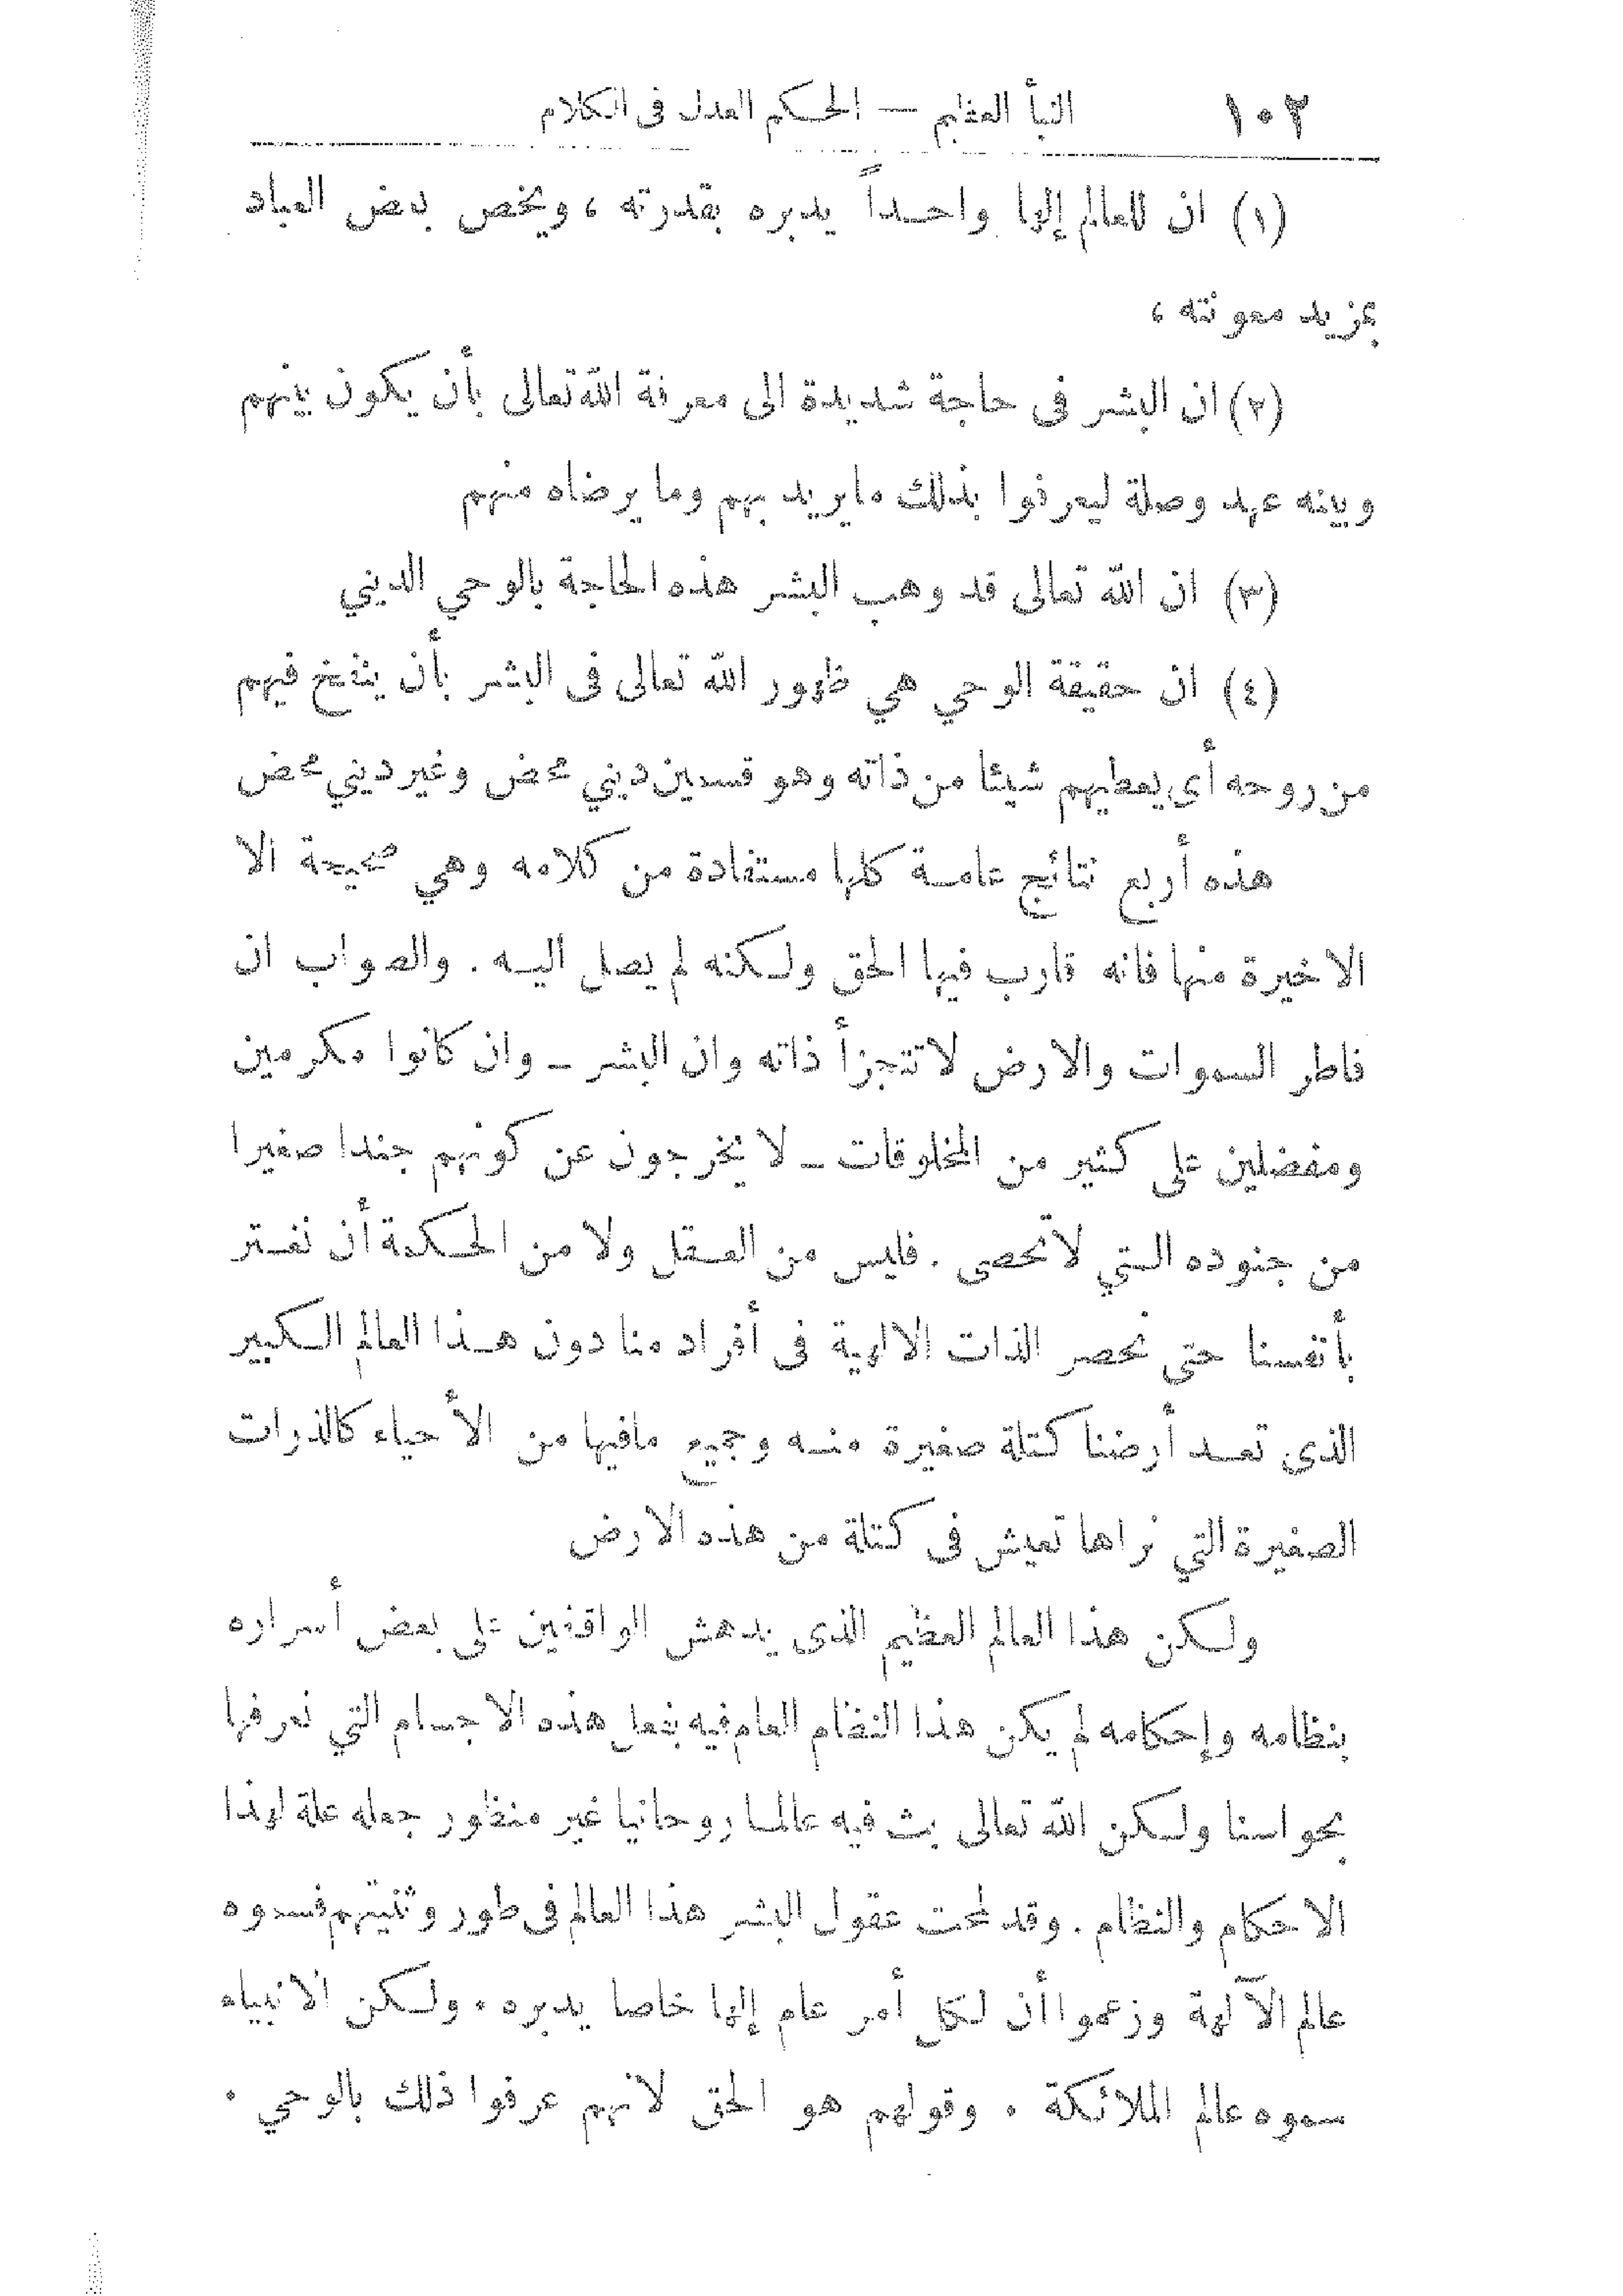 ١٠٢ النبأ العظيم — الحكم العدل فى الكلام
(١) ان للعالم إلها واحداً يدبره بقدرته ، ويخص بعض العباد
بمزيد معونته ،
(٢) ان البشر فى حاجة شديدة الى معرفة الله تعالى بأن يكون بينهم
وبينه عهد وصلة ليعرفوا بذلك مايريد بهم وما يرضاه منهم
(٣) ان الله تعالى قد وهب البشر هذه الحاجة بالوحي الديني
(٤) ان حقيقة الوحي هي ظهور الله تعالى فى البشر بأن ينفخ فيهم
من روحه أى يعطيهم شيئا من ذاته وهو قسمين ديني محض وغير ديني محض
هذه أربع نتائج عامة كلها مستفادة من كلامه وهي صحيحة الا
الاخيرة منها فانه قارب فيها الحق ولكنه لم يصل اليه . والصواب ان
فاطر السموات والارض لاتتجزأ ذاته وان البشر ــ وان كانوا مكرمين
ومفضلين على كثير من المخلوقات ــ لا يخرجون عن كونهم جندا صغيرا
من جنوده التي لاتحصى . فليس من العقل ولا من الحكمة أن نغتر
بأنفسنا حتى نحصر الذات الالهية فى أفراد منا دون هذا العالم الكبير
الذى تعد أرضنا كتلة صغيرة منه وجميع مافيها من الأحياء كالذرات
الصغيرة التي نراها تعيش فى كتلة من هذه الارض
ولكن هذا العالم العظيم الذى يدهش الواقفين على بعض أسراره
بنظامه وإحكامه لم يكن هذا النظام العام فيه بفعل هذه الاجسام التي نعرفها
بحواسنا ولكن الله تعالى بث فيه عالما روحانيا غير منظور جعله علة لهذا
الاحكام والنظام . وقد لمحت عقول البشر هذا العالم فى طور وثنيتهم فسموه
عالم الآلهة وزعموا أن لكل أمر عام إلها خاصا يدبره . ولكن الانبياء
سموه عالم الملائكة . وقولهم هو الحق لانهم عرفوا ذلك بالوحي .